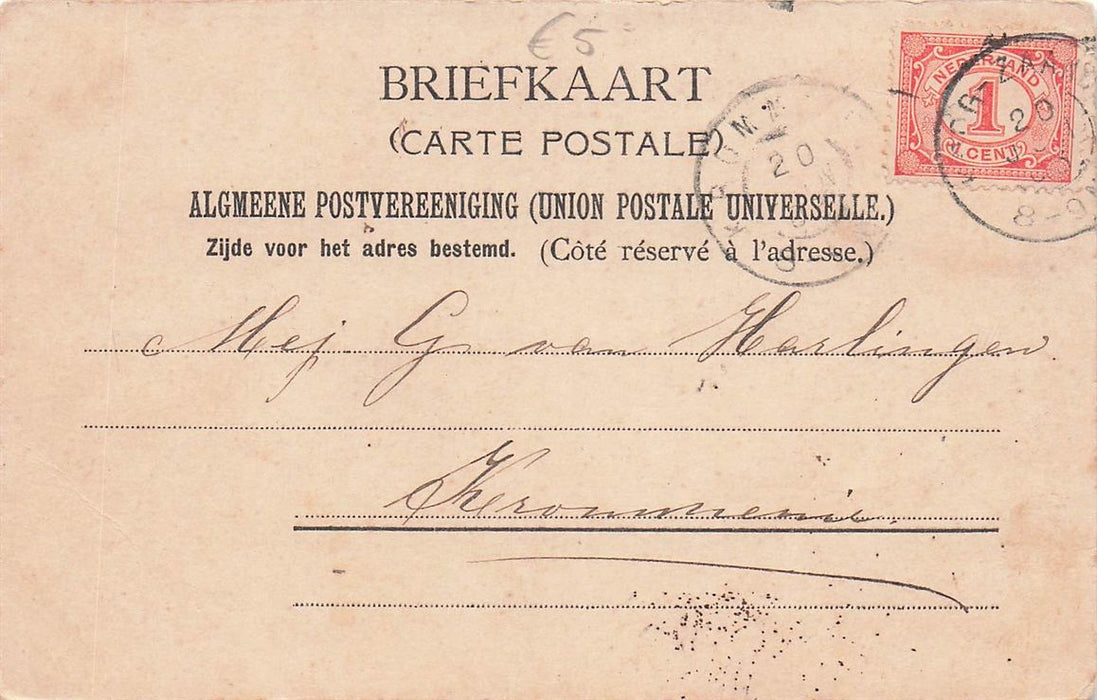 € 5
BRIEFKAART
(CARTE POSTALE)
ALGMEENE POSTVEREENIGING (UNION POSTALE UNIVERSELLE.)
Zijde voor het adres bestemd. (Côté réservé à l'adresse.)
NEDERLAND
1
CENT
20
20
8-9
Mej G van Harlingen
Krommenie.